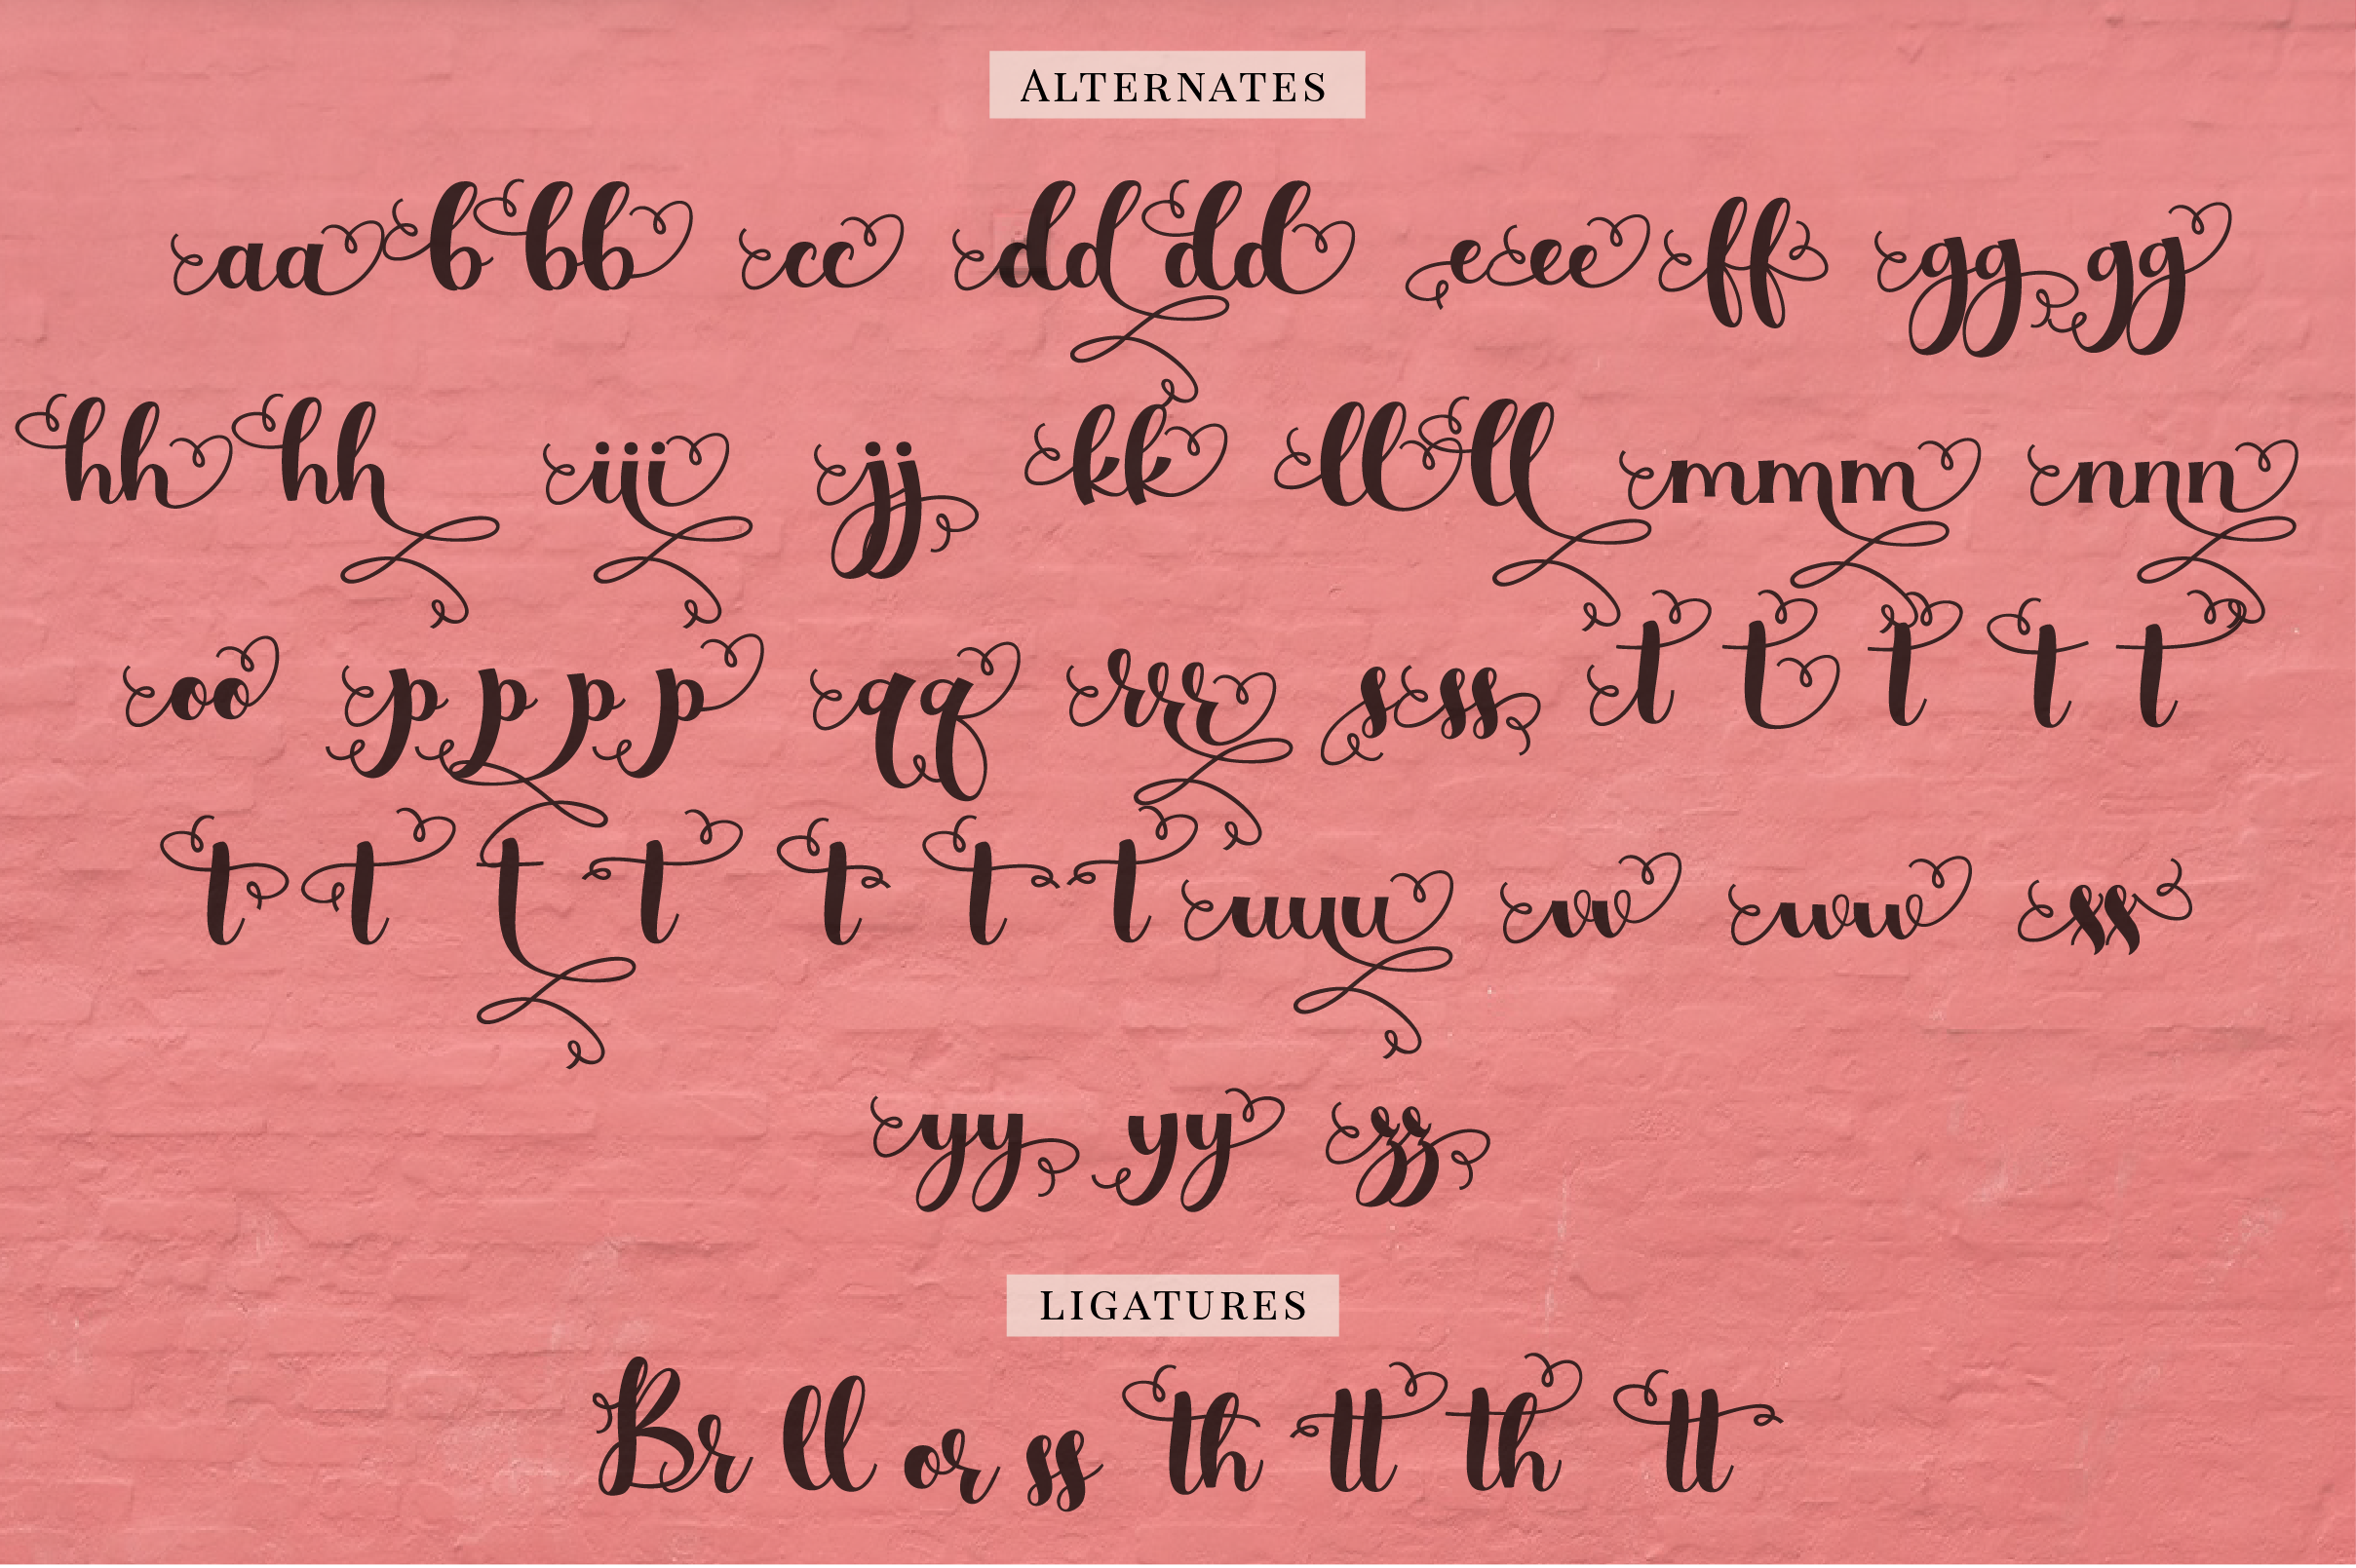 ALTERNATES
aa b bb cc dd dd e ee ff gg gg
hh hh iii jj kk ll ll mmm nnn
oo p p p p qq rrr s ss t t t t t
t t t t t t t uuu vv ww xx
yy yy zz
LIGATURES
Br ll or ss th tt th tt